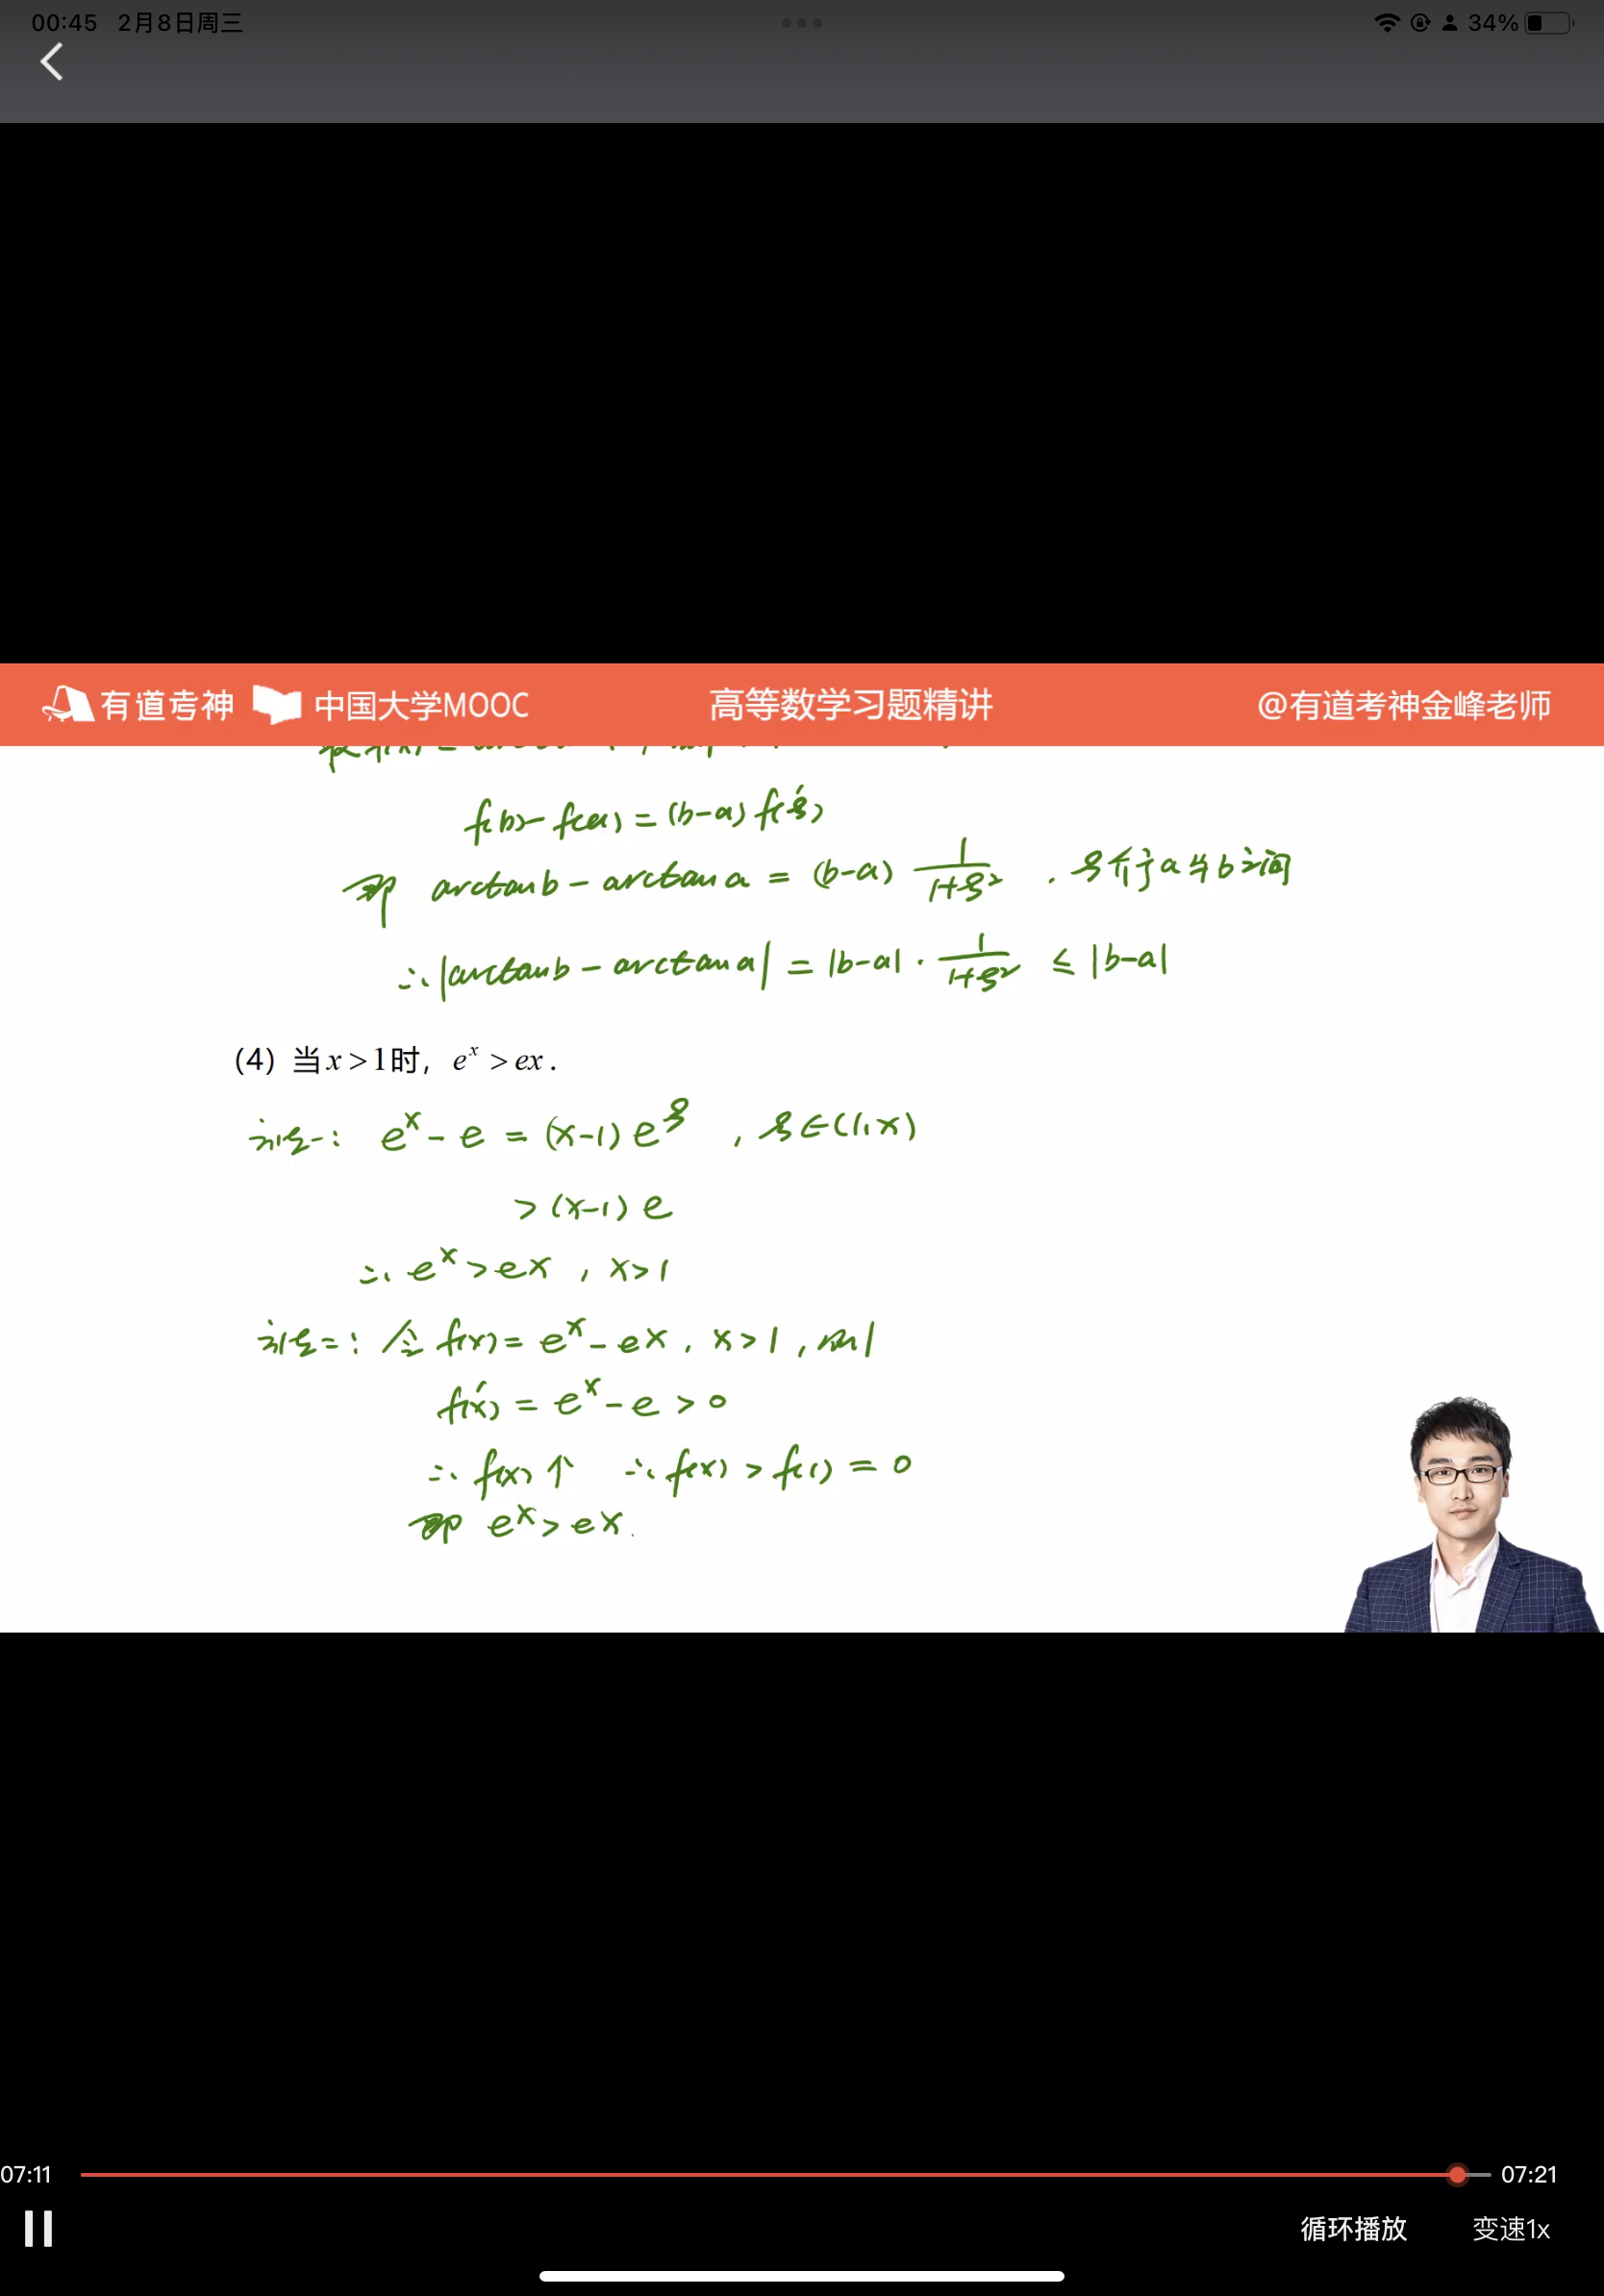 00:45 2月8日周三 34%
有道考神 中国大学MOOC 高等数学习题精讲 @有道考神金峰老师
f(b)-f(a)=(b-a)f'(ξ)
即 arctan b - arctan a = (b-a) 1/(1+ξ²) , ξ介于a与b之间
∴ |arctan b - arctan a| = |b-a| · 1/(1+ξ²) ≤ |b-a|
(4) 当x>1时, eˣ > ex.
证法一: eˣ - e = (x-1) e^ξ , ξ∈(1,x)
> (x-1) e
∴ eˣ > ex , x>1
证法二: 令 f(x) = eˣ - ex , x>1 , 则
f'(x) = eˣ - e > 0
∴ f(x)↑ ∴ f(x) > f(1) = 0
即 eˣ > ex.
07:11 07:21
循环播放 变速1x